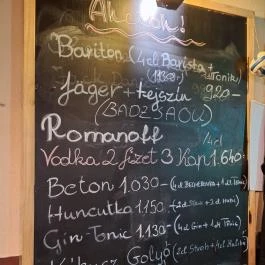 Akciók!
Bariton (4cl Barista +
Tonik)
Jäger + tejszín 920-
(BADZSAOU)
Romanoff 4cl
Vodka 2 fizet 3 Kap 1.640-
Beton 1.030-(4cl Becherovka + 1dl Tonic)
Huncutka 1.150-
Gin-Tonic 1.130-(4cl Gin + 1dl Tonic)
Golyó (2cl Stroh +